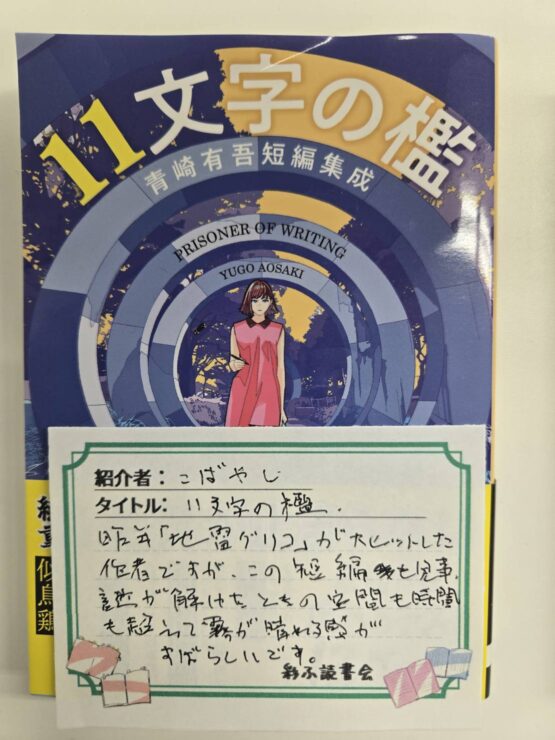 11文字の檻
青崎有吾短編集成
PRISONER OF WRITING
YUGO AOSAKI
紹介者：こばやし
タイトル：11文字の檻.
昨年「地雷グリコ」が大ヒットした
作者ですが、この短編も見事.
謎が解けたときの空間も時間
も超えて霧が晴れる感が
すばらしいです。
彩ふ読書会
似鳥鶏